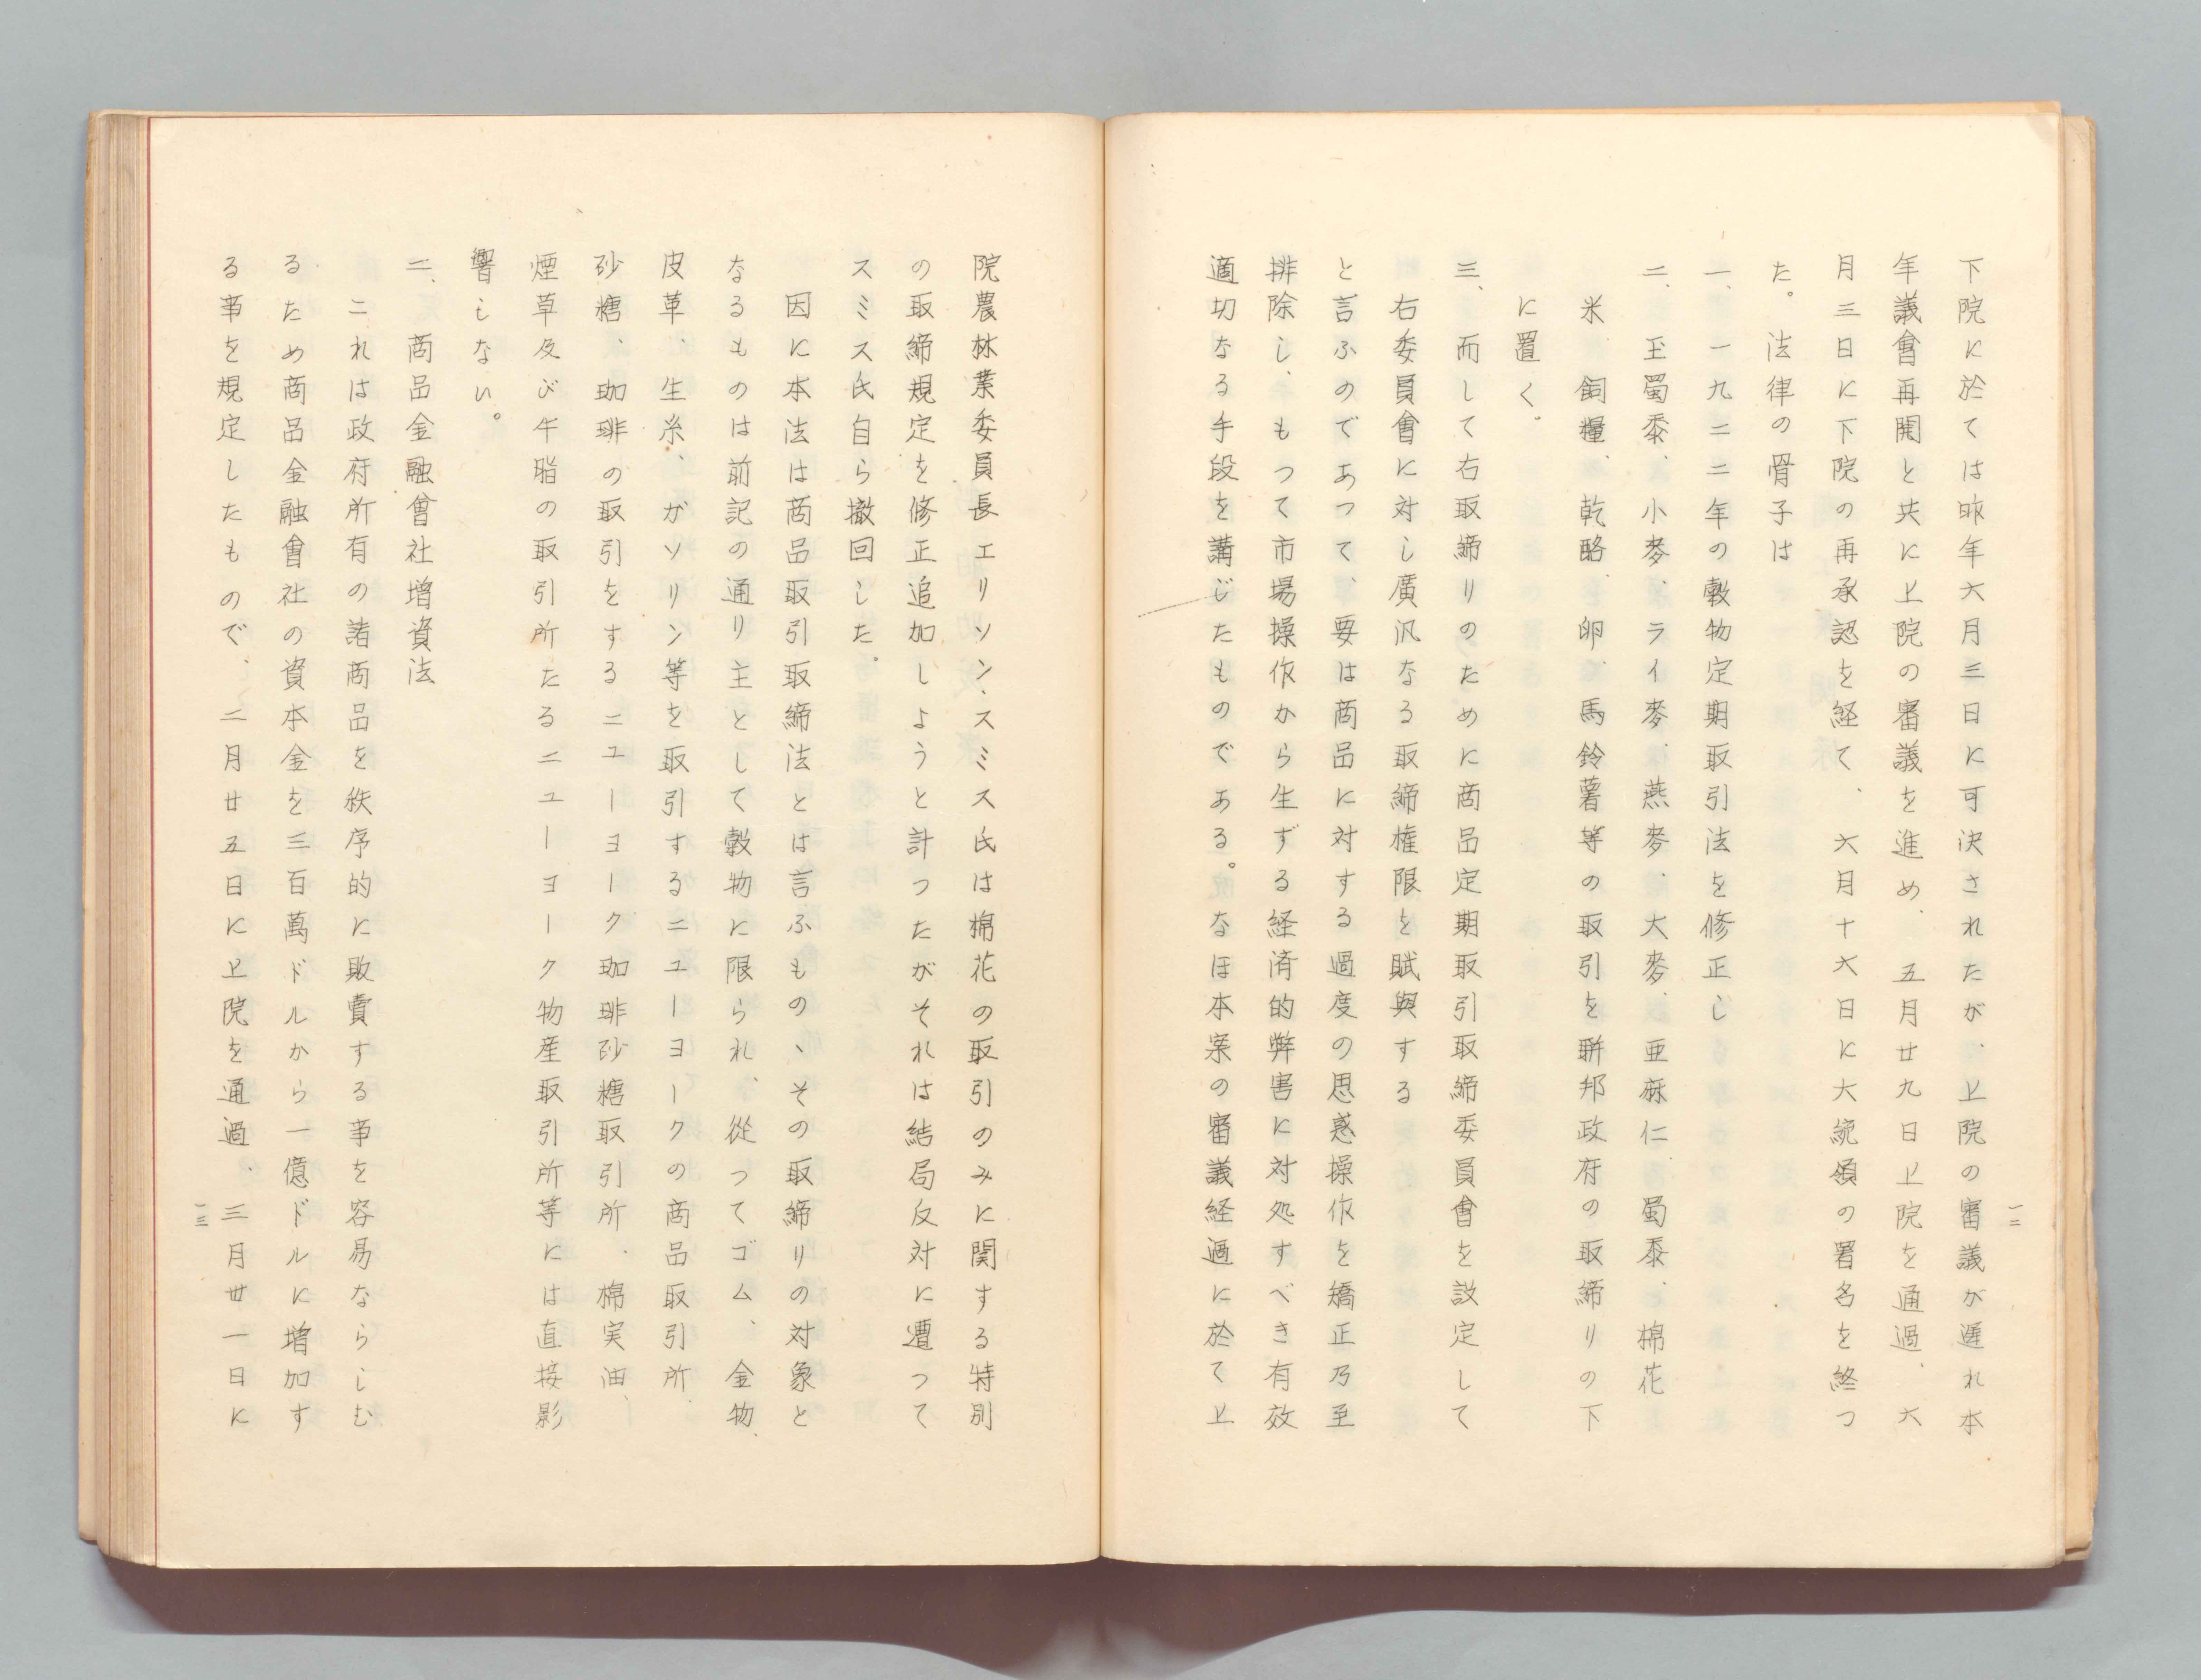 下院に於ては昨年六月三日に可決されたが、上院の審議が遅れ本
年議會再開と共に上院の審議を進め、五月廿九日上院を通過、六
月三日に下院の再承認を経て、六月十六日に大統領の署名を終つ
た。法律の骨子は
一、一九二二年の穀物定期取引法を修正し
二、玉蜀黍、小麥、ライ麥、燕麥、大麥、亜麻仁、蜀黍、棉花
米、飼糧、乾酪、卵、馬鈴薯等の取引を聯邦政府の取締りの下
に置く。
三、而して右取締りのために商品定期取引取締委員會を設定して
右委員會に対し廣汎なる取締権限を賦與する
と言ふのであつて、要は商品に対する過度の思惑操作を矯正乃至
排除し、もつて市場操作から生ずる経済的弊害に対処すべき有效
適切なる手段を講じたものである。なほ本案の審議経過に於て上
一二
院農林業委員長エリソン、スミス氏は棉花の取引のみに関する特別
の取締規定を修正追加しようと計つたがそれは結局反対に遭つて
スミス氏自ら撤回した。
因に本法は商品取引取締法とは言ふもの丶その取締りの対象と
なるものは前記の通り主として穀物に限られ、從つてゴム、金物、
皮革、生糸、ガソリン等を取引するニユーヨークの商品取引所、
砂糖、珈琲の取引をするニユーヨーク珈琲砂糖取引所、棉実油、
煙草及び牛脂の取引所たるニユーヨーク物産取引所等には直接影
響しない。
二、商品金融會社増資法
これは政府所有の諸商品を秩序的に敗賣する事を容易ならしむ
るため商品金融會社の資本金を三百萬ドルから一億ドルに増加す
る事を規定したもので、二月廿五日に上院を通過、三月廿一日に
一三